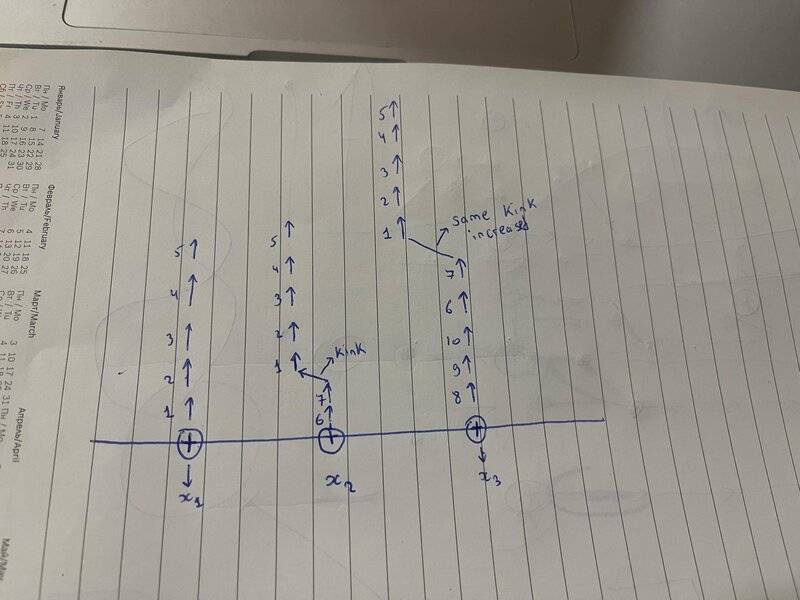 5
4
3
2
1
x1
5
4
3
2
1
Kink
7
6
x2
5
4
3
2
1
same Kink
increased
7
6
10
9
8
x3
Январь/January
Пн / Mo 7 14 21 28
Вт / Tu 1 8 15 22 29
Ср / We 2 9 16 23 30
Чт / Th 3 10 17 24 31
Пт / Fr 4 11 18 25
Февраль/February
Пн / Mo 4 11 18 25
Вт / Tu 5 12 19 26
Ср / We 6 13 20 27
Март/March
Пн / Mo 3 10 17 24 31
Апрель/April
Пн / Mo
Май/May